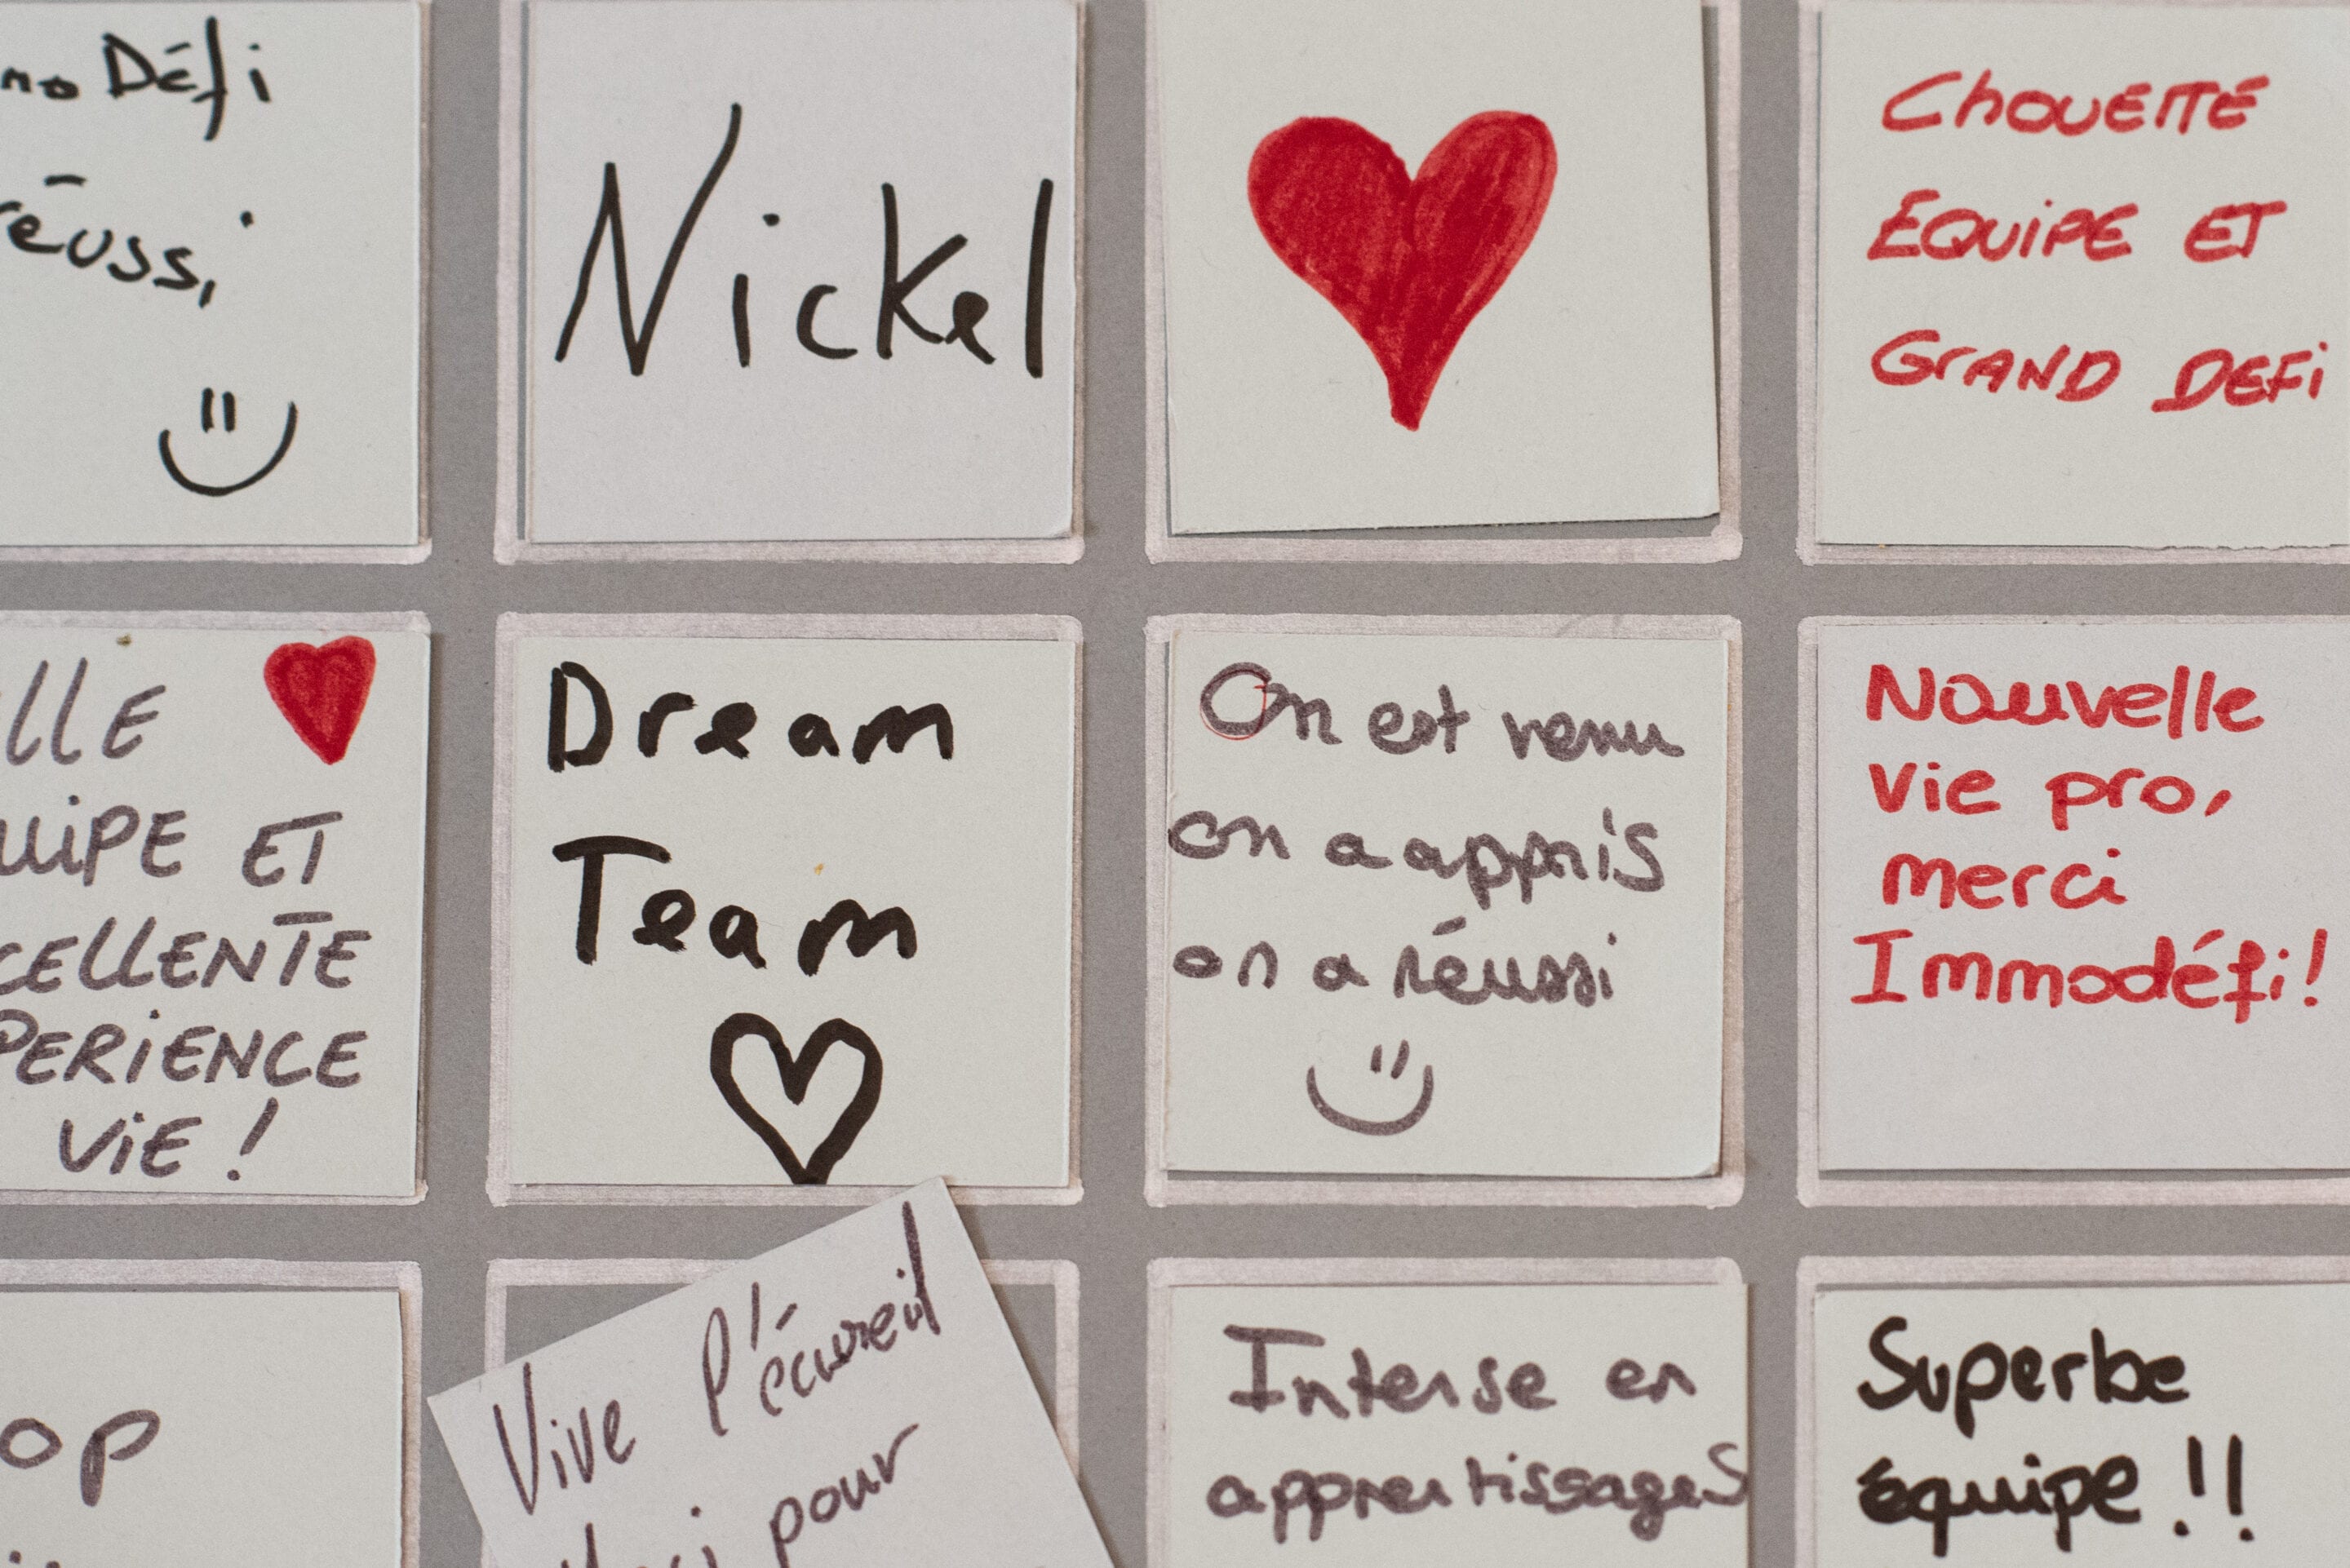 Défi
réussi
Nickel
CHOUETTE
EQUIPE ET
GRAND DEFI
ET
VIE !
Dream
Team
On est venu
on a appris
on a réussi
Nouvelle
vie pro,
merci
Immodéfi!
Vive l'écureuil
pour
Intense en
apprentissages
Superbe
équipe !!